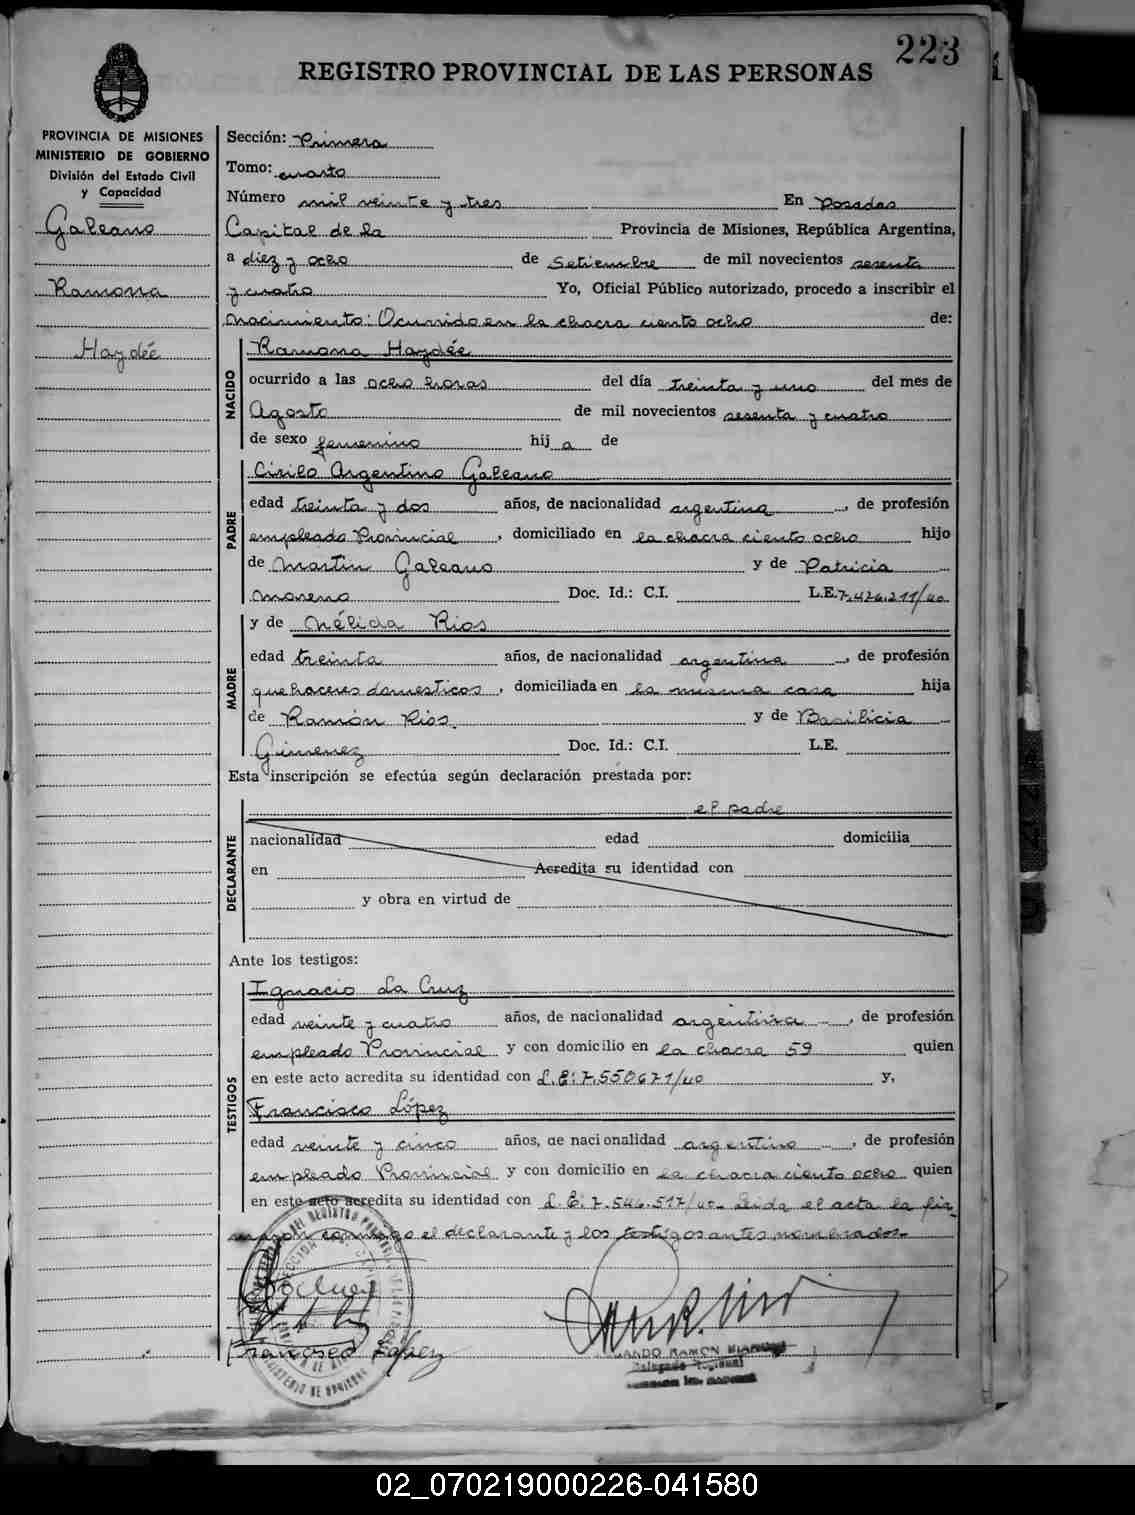 223
REGISTRO PROVINCIAL DE LAS PERSONAS
PROVINCIA DE MISIONES
MINISTERIO DE GOBIERNO
División del Estado Civil
y Capacidad
Galeano
Ramona
Haydée
Sección: Primera
Tomo: cuarto
Número mil veinte y tres En Posadas
Capital de la Provincia de Misiones, República Argentina,
a diez y ocho de Setiembre de mil novecientos sesenta
y cuatro Yo, Oficial Público autorizado, procedo a inscribir el
Nacimiento: Ocurrido en la chacra ciento ocho de:
NACIDO
Ramona Haydée
ocurrido a las ocho horas del día treinta y uno del mes de
Agosto de mil novecientos sesenta y cuatro
de sexo femenino hij a de
PADRE
Cirilo Argentino Galeano
edad treinta y dos años, de nacionalidad argentina, de profesión
empleado Provincial, domiciliado en la chacra ciento ocho hijo
de Martín Galeano y de Patricia
Moreno Doc. Id.: C.I. L.E. 7.426.211/40
MADRE
y de Nélida Rios
edad treinta años, de nacionalidad argentina, de profesión
quehaceres domesticos, domiciliada en la misma casa hija
de Ramón Rios. y de Basilicia
Gimenez Doc. Id.: C.I. L.E.
Esta inscripción se efectúa según declaración prestada por:
DECLARANTE
el padre
nacionalidad edad domicilia
en Acredita su identidad con
y obra en virtud de
Ante los testigos:
TESTIGOS
Ignacio La Cruz
edad veinte y cuatro años, de nacionalidad argentina, de profesión
empleado Provincial y con domicilio en la chacra 59 quien
en este acto acredita su identidad con L.E: 7.550671/40 y,
Francisco López
edad veinte y cinco años, de nacionalidad argentino, de profesión
empleado Provincial y con domicilio en la chacra ciento ocho quien
en este acto acredita su identidad con L.E: 7.546.517/40 Leida el acta la fir-
maron conmigo el declarante y los testigos antes nombrados.
Francisco López
RAMON
Delegado Regional
02_070219000226-041580